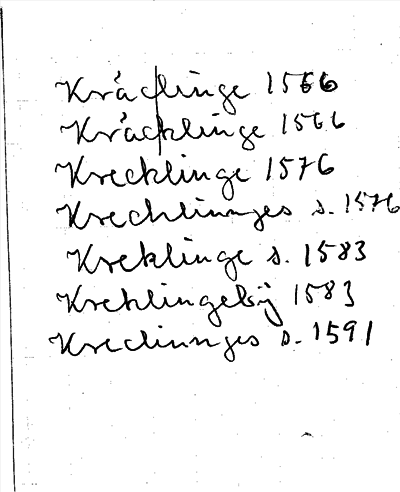 Kräclinge 1566
Kräcklinge 1566
Krecklinge 1576
Krechlinnges s. 1576
Kreklinge s. 1583
Kreklingebÿ 1583
Kreclinnges s. 1591